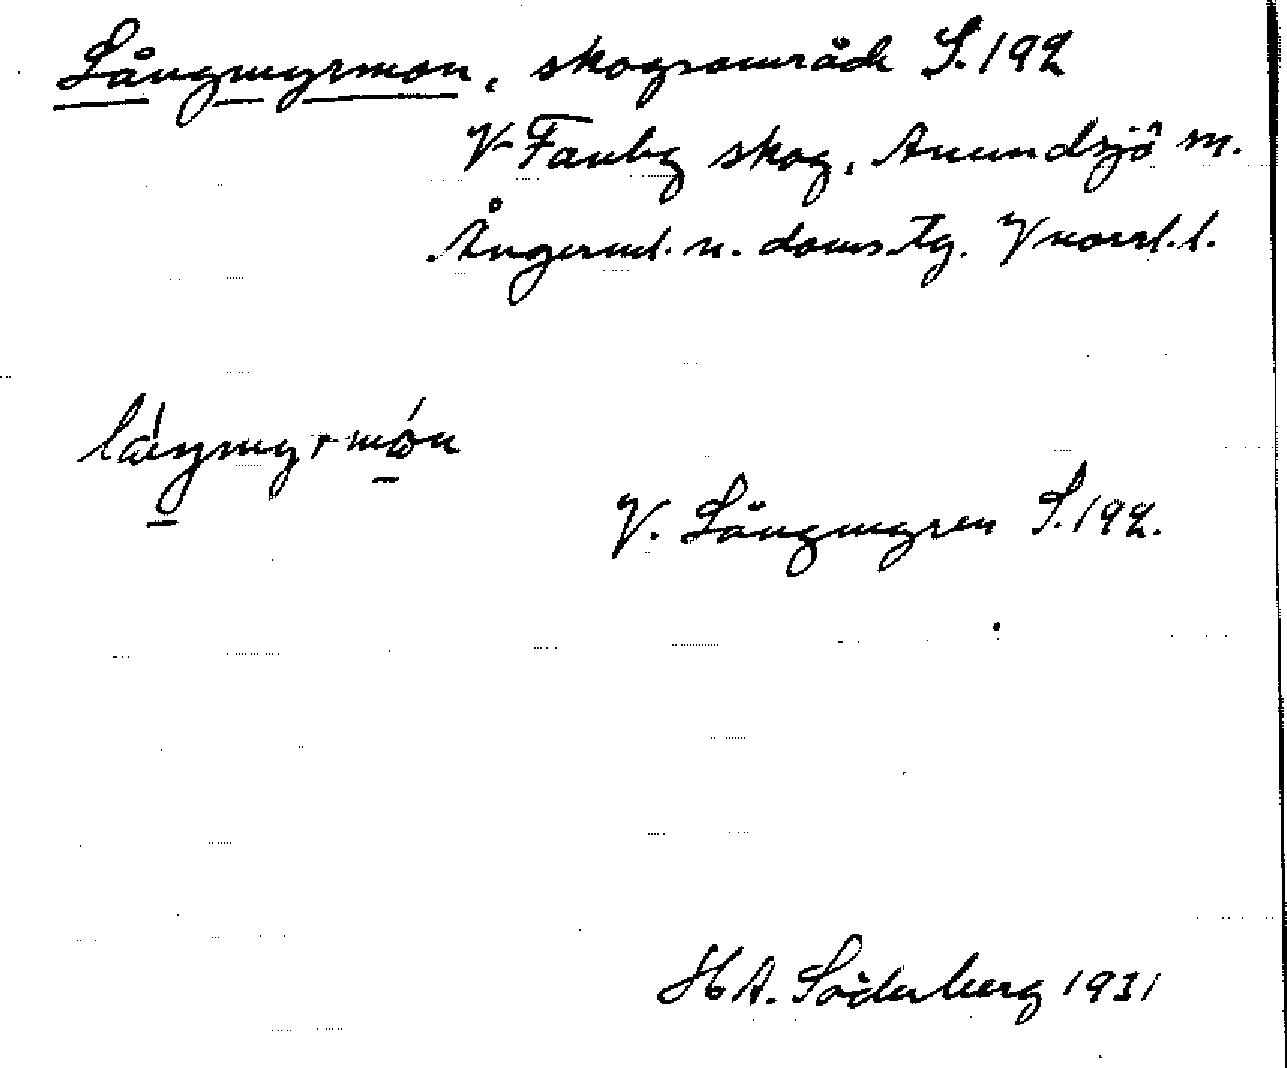 Långmyrmon, skogsområde S.192
V Fanbg skog, Anundsjö sn.
Ångerml. n. doms.tg. Vnorrl.l.
långmyrmón
V. Långmyren S.192.
H A. Söderberg 1931